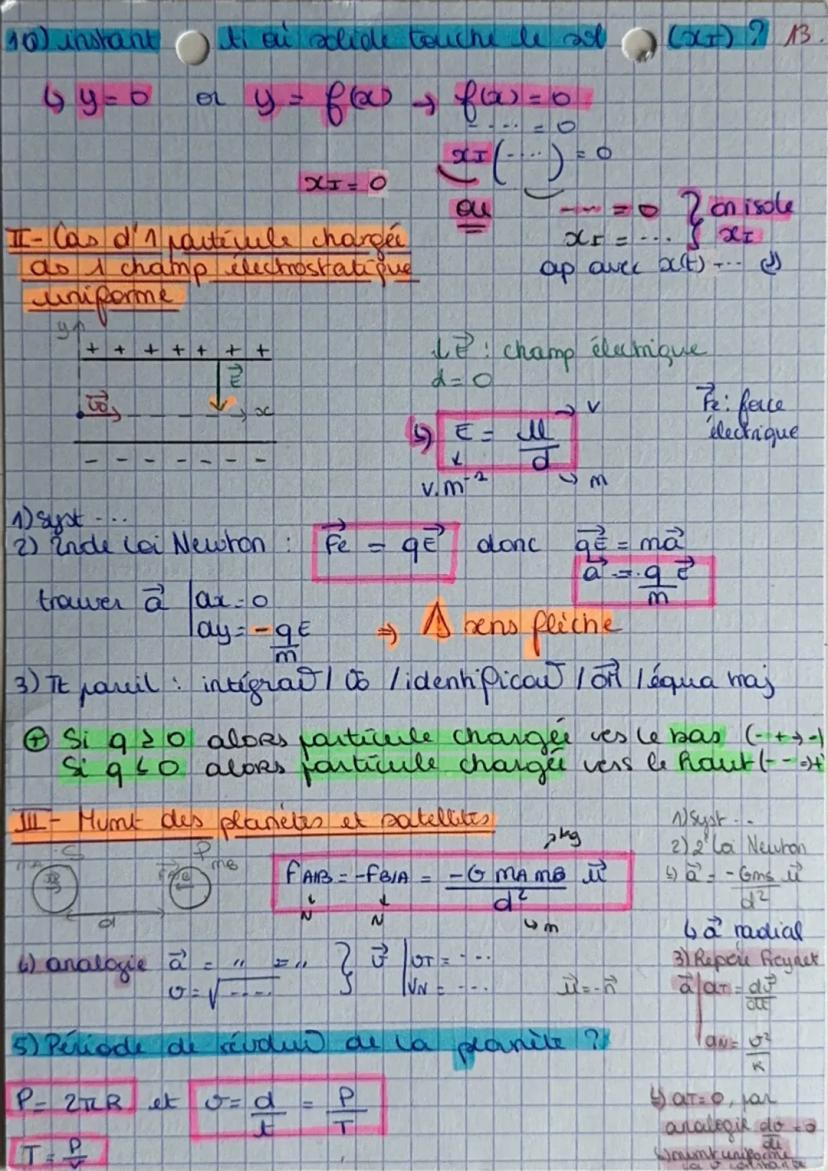 10) instant ti où solide touche le sol (xI) ? 13.
↳ y=0 or y = f(x) → f(x) = 0
---- = 0
xI(----) = 0
xI = 0
ou
---- = 0 } on isole
xI = ... } xI
ap avec x(t) ...
II- Cas d'1 particule chargée
ds 1 champ électrostatique
uniforme
y
+ + + + + + +
E
x
- - - - - - -
↓E : champ électrique
d = 0
E = U/d
V
V.m⁻¹
m
Fe : force
électrique
1) Syst ...
2) 2nde Loi Newton : Fe = qE donc qE = ma
a = q/m E
trouver a | ax = 0
| ay = -qE/m ⇒ ⚠ sens flèche
3) Tt pareil : intégrat° / / identificat° / OM / équa maj
⊕ Si q ≥ 0 alors particule chargée vers le bas (-+→-)
Si q < 0 alors particule chargée vers le haut (--→+
III- Mvmt des planètes et satellites
S P mB
d
FA/B = -FB/A = -G mA mB / d² u
kg
N N
m
4) analogie a = " = " } v | vT = ---
v = √---- } | vN = ---
u = -n
1) Syst ..
2) 2° Loi Newton
↳ a = -Gms/d² u
↳ a radial
3) Repère Freynet
a | aT = dv/dt
| aN = v²/R
↳ aT = 0, par
analogie dv/dt = 0
↳ mvmt uniforme
5) Période de révolut° de la planète ?
P = 2πR et v = d/t = P/T
T = P/v